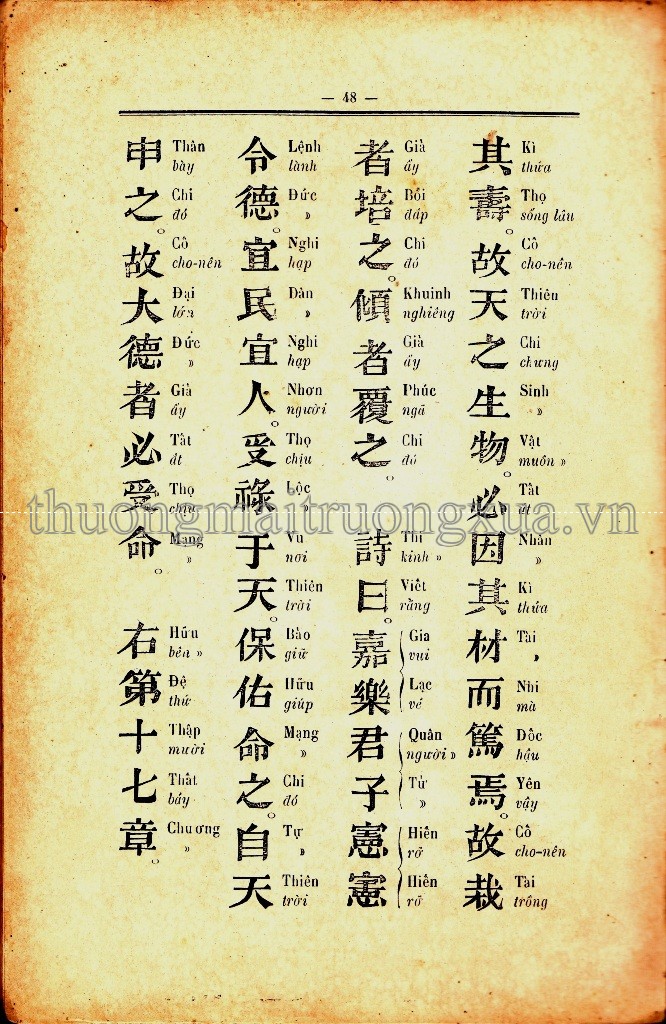 — 48 —
其 Kì thửa
壽。 Thọ sống lâu
故 Cố cho-nên
天 Thiên trời
之 Chi chưng
生 Sinh »
物。 Vật muôn »
必 Tất ắt
因 Nhân »
其 Kì thửa
材 Tài »
而 Nhi mà
篤 Đốc hậu
焉。 Yên vậy
故 Cố cho-nên
栽 Tài trồng
者 Giả ấy
培 Bồi đắp
之。 Chi đó
傾 Khuinh nghiêng
者 Giả ấy
覆 Phúc ngã
之。 Chi đó
詩 Thi kinh »
曰。 Viết rằng
嘉 Gia vui
樂 Lạc vẻ
君 Quân người »
子 Tử »
憲 Hiến rỡ
憲 Hiến rỡ
令 Lệnh lành
德。 Đức »
宜 Nghi hạp
民 Dân »
宜 Nghi hạp
人。 Nhơn người
受 Thọ chịu
祿 Lộc »
于 Vu nơi
天。 Thiên trời
保 Bảo giữ
佑 Hữu giúp
命 Mạng »
之。 Chi đó
自 Tự »
天 Thiên trời
申 Thân bày
之。 Chi đó
故 Cố cho-nên
大 Đại lớn
德 Đức »
者 Giả ấy
必 Tất ắt
受 Thọ chịu
命。 Mạng »
右 Hữu bên »
第 Đệ thứ
十 Thập mười
七 Thất bảy
章。 Chương »
thuongmaitruongxua.vn